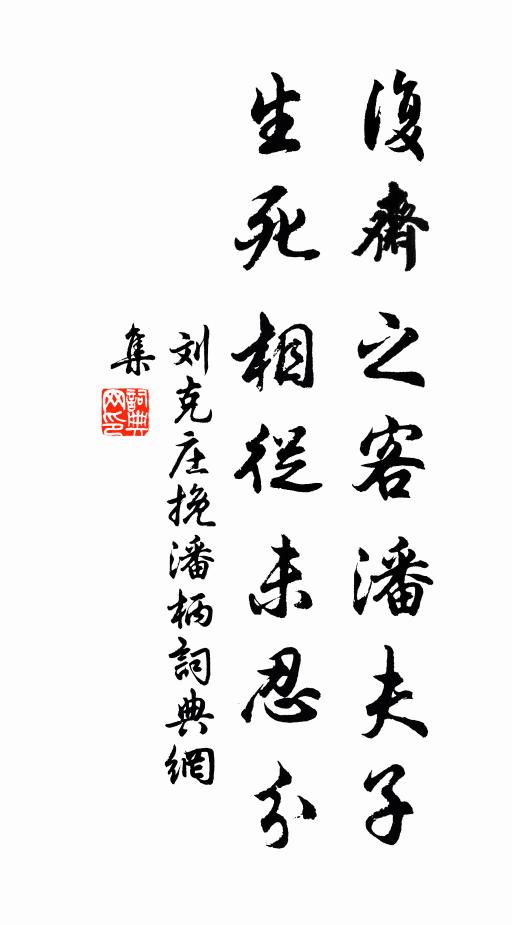 復齋之客潘夫子
生死相從未忍分
刘克庄挽潘柄詞典網
集
詞典網印